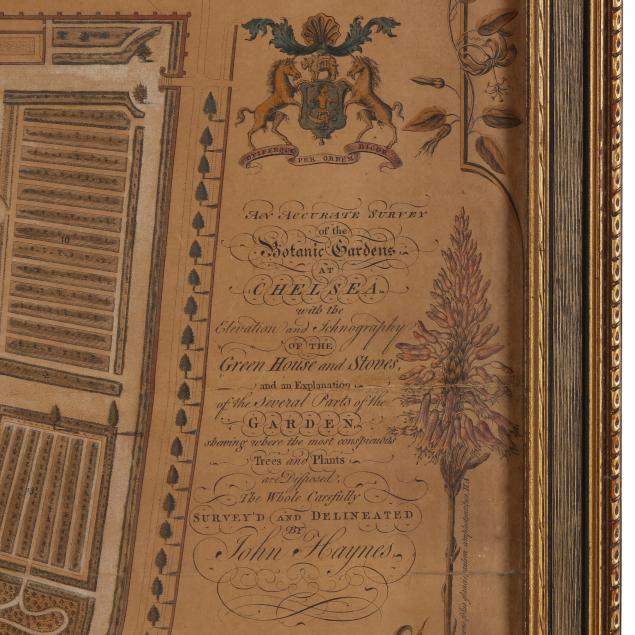 OPIFERQUE PER ORBEM DICOR
AN ACCURATE SURVEY
of the
Botanic Gardens
AT
CHELSEA
with the
Elevation and Ichnography
OF THE
Green House and Stoves,
and an Explanation
of the Several Parts of the
GARDEN,
shewing where the most conspicuous
Trees and Plants
are Disposed,
The Whole Carefully
SURVEY'D AND DELINEATED
BY
John Haynes.
10